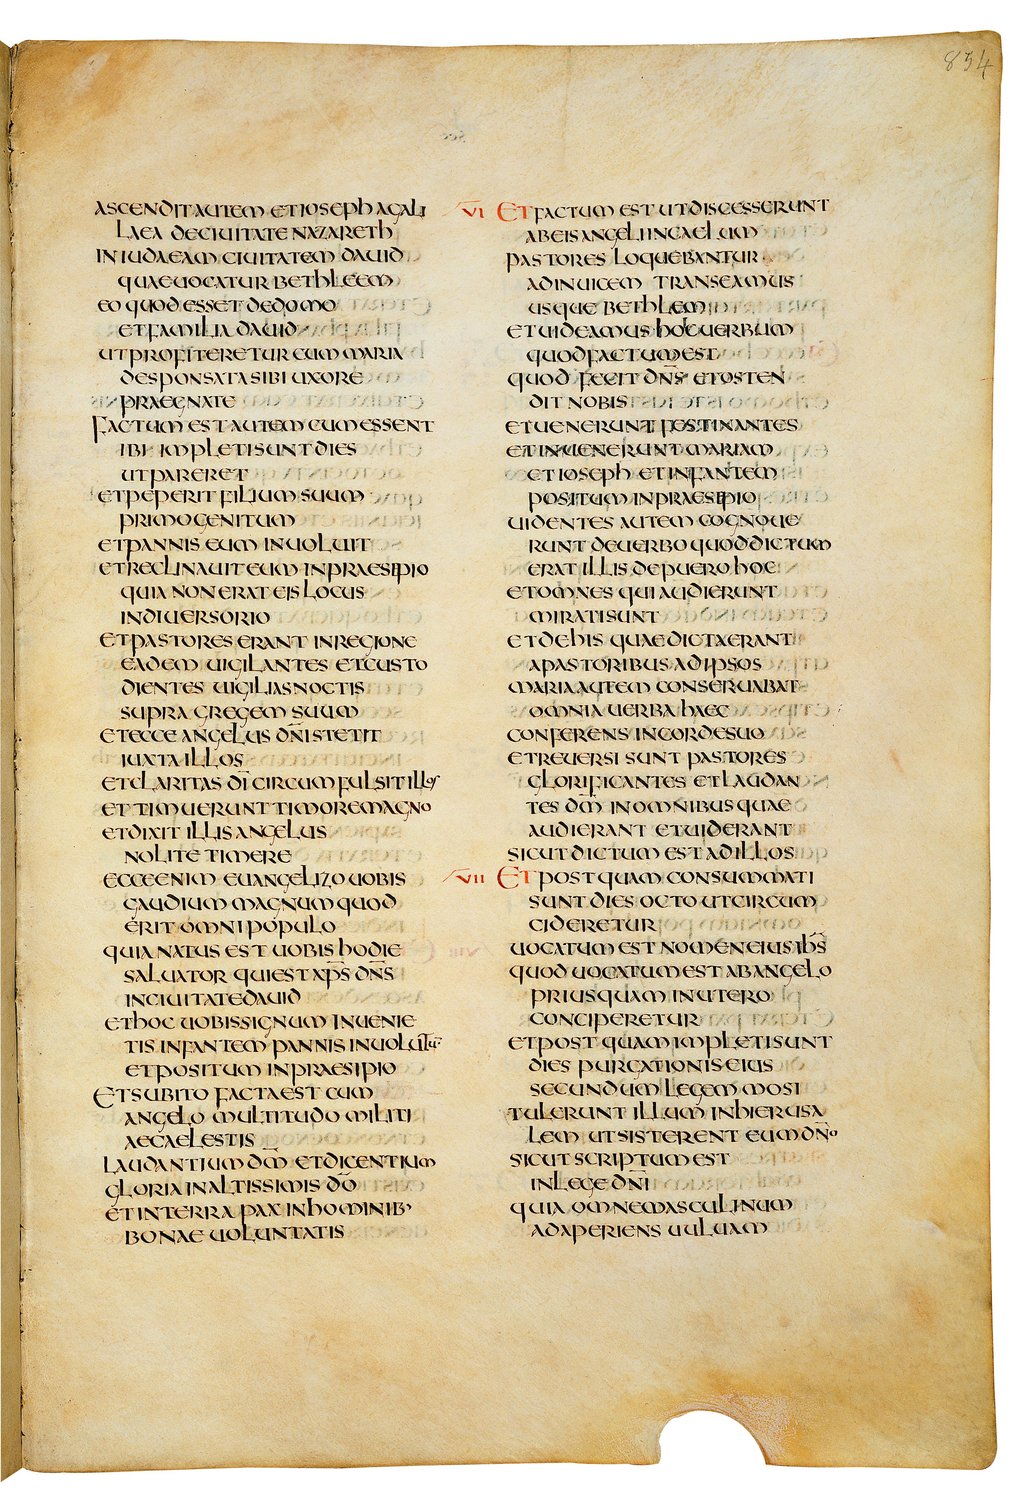 834
ASCENDIT AUTEM ET IOSEPH A GALI
LAEA DE CIUITATE NAZARETH
IN IUDAEAM CIUITATEM DAUID
QUAE UOCATUR BETHLEEM
EO QUOD ESSET DE DOMO
ET FAMILIA DAUID
UT PROFITERETUR CUM MARIA
DESPONSATA SIBI UXORE
PRAEGNATE
FACTUM EST AUTEM CUM ESSENT
IBI IMPLETI SUNT DIES
UT PARERET
ET PEPERIT FILIUM SUUM
PRIMOGENITUM
ET PANNIS EUM INUOLUIT
ET RECLINAUIT EUM IN PRAESIPIO
QUIA NON ERAT EIS LOCUS
IN DIUERSORIO
ET PASTORES ERANT IN REGIONE
EADEM UIGILANTES ET CUSTO
DIENTES UIGILIAS NOCTIS
SUPRA GREGEM SUUM
ET ECCE ANGELUS DN̄I STETIT
IUXTA ILLOS
ET CLARITAS DĪ CIRCUMFULSIT ILLOS
ET TIMUERUNT TIMORE MAGNO
ET DIXIT ILLIS ANGELUS
NOLITE TIMERE
ECCE ENIM EUANGELIZO UOBIS
GAUDIUM MAGNUM QUOD
ERIT OMNI POPULO
QUIA NATUS EST UOBIS HODIE
SALUATOR QUI EST XP̄S DN̄S
IN CIUITATE DAUID
ET HOC UOBIS SIGNUM INUENIE
TIS INFANTEM PANNIS INUOLUTŪ
ET POSITUM IN PRAESIPIO
ET SUBITO FACTA EST CUM
ANGELO MULTITUDO MILITI
AE CAELESTIS
LAUDANTIUM DM̄ ET DICENTIUM
GLORIA IN ALTISSIMIS DŌ
ET IN TERRA PAX IN HOMINIB·
BONAE UOLUNTATIS
VI ET FACTUM EST UT DISCESSERUNT
AB EIS ANGELI IN CAELUM
PASTORES LOQUEBANTUR
AD INUICEM TRANSEAMUS
USQUE BETHLEM
ET UIDEAMUS HOC UERBUM
QUOD FACTUM EST
QUOD FECIT DN̄S ET OSTEN
DIT NOBIS
ET UENERUNT FESTINANTES
ET INUENERUNT MARIAM
ET IOSEPH ET INFANTEM
POSITUM IN PRAESIPIO
UIDENTES AUTEM COGNOUE
RUNT DE UERBO QUOD DICTUM
ERAT ILLIS DE PUERO HOC
ET OMNES QUI AUDIERUNT
MIRATI SUNT
ET DE HIS QUAE DICTA ERANT
A PASTORIBUS AD IPSOS
MARIA AUTEM CONSERUABAT
OMNIA UERBA HAEC
CONFERENS IN CORDE SUO
ET REUERSI SUNT PASTORES
GLORIFICANTES ET LAUDAN
TES DM̄ IN OMNIBUS QUAE
AUDIERANT ET UIDERANT
SICUT DICTUM EST AD ILLOS
VII ET POSTQUAM CONSUMMATI
SUNT DIES OCTO UT CIRCUM
CIDERETUR
UOCATUM EST NOMEN EIUS IHS̄
QUOD UOCATUM EST AB ANGELO
PRIUSQUAM IN UTERO
CONCIPERETUR
ET POSTQUAM IMPLETI SUNT
DIES PURGATIONIS EIUS
SECUNDUM LEGEM MOSI
TULERUNT ILLUM IN HIERUSA
LEM UT SISTERENT EUM DN̄O
SICUT SCRIPTUM EST
IN LEGE DN̄I
QUIA OMNE MASCULINUM
ADAPERIENS UULUAM